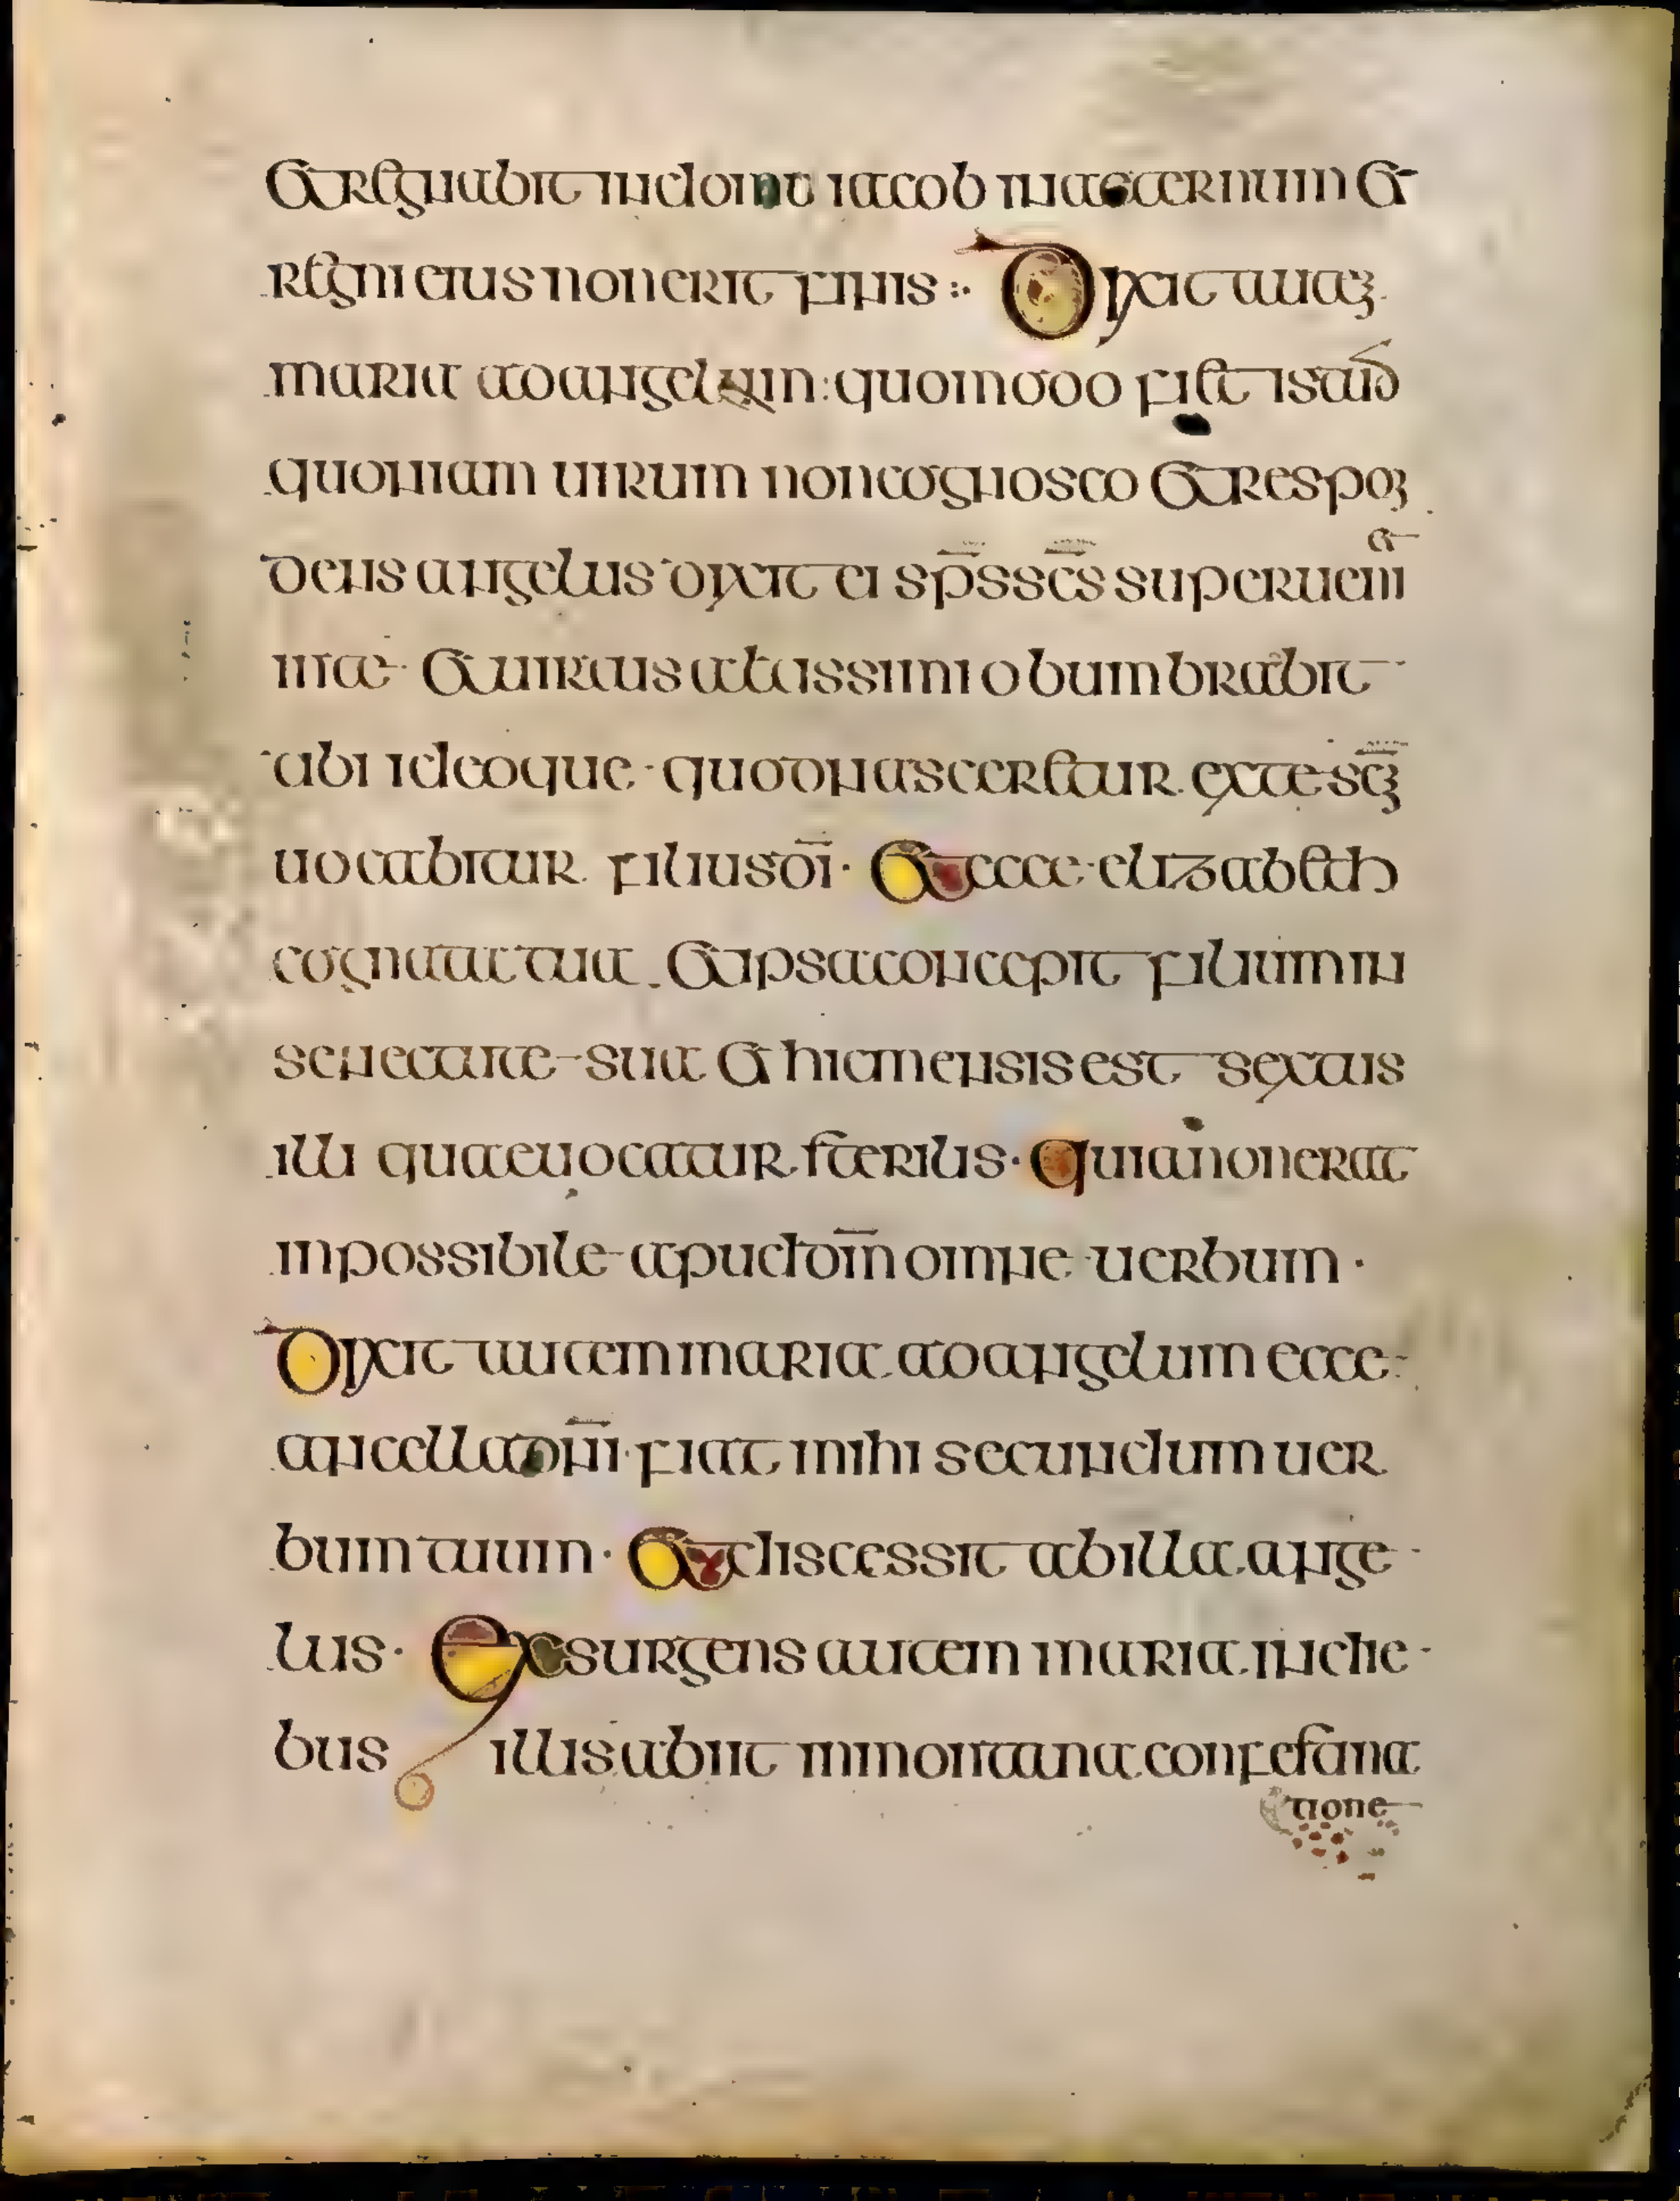 Et regnabit in domu iacob in aeternum et
regni eius non erit finis Dixit aute̅
maria ad angelum: quomodo fiet istud
quoniam uirum non cognosco Et respo̅
dens angelus dixit ei sp̅s sc̅s superueni
et
in te · Et uirtus altissimi obumbrabit
tibi ideoque · quod nascetur ex te sc̅m
uocabitur filius di̅ · Et ecce · elizabeth
cognata tua Et ipsa concepit filium in
senectute sua Et hic mensis est sextus
illi quae uocatur sterilis · quia non erat
inpossibile apud dom̅ omne uerbum ·
Dixit autem maria ad angelum ecce
ancella dn̅i · fiat mihi secundum uer
bum tuum · Et discessit ab illa ange
lus · Exsurgens autem maria in die
bus illis abiit in montana con festina
tione